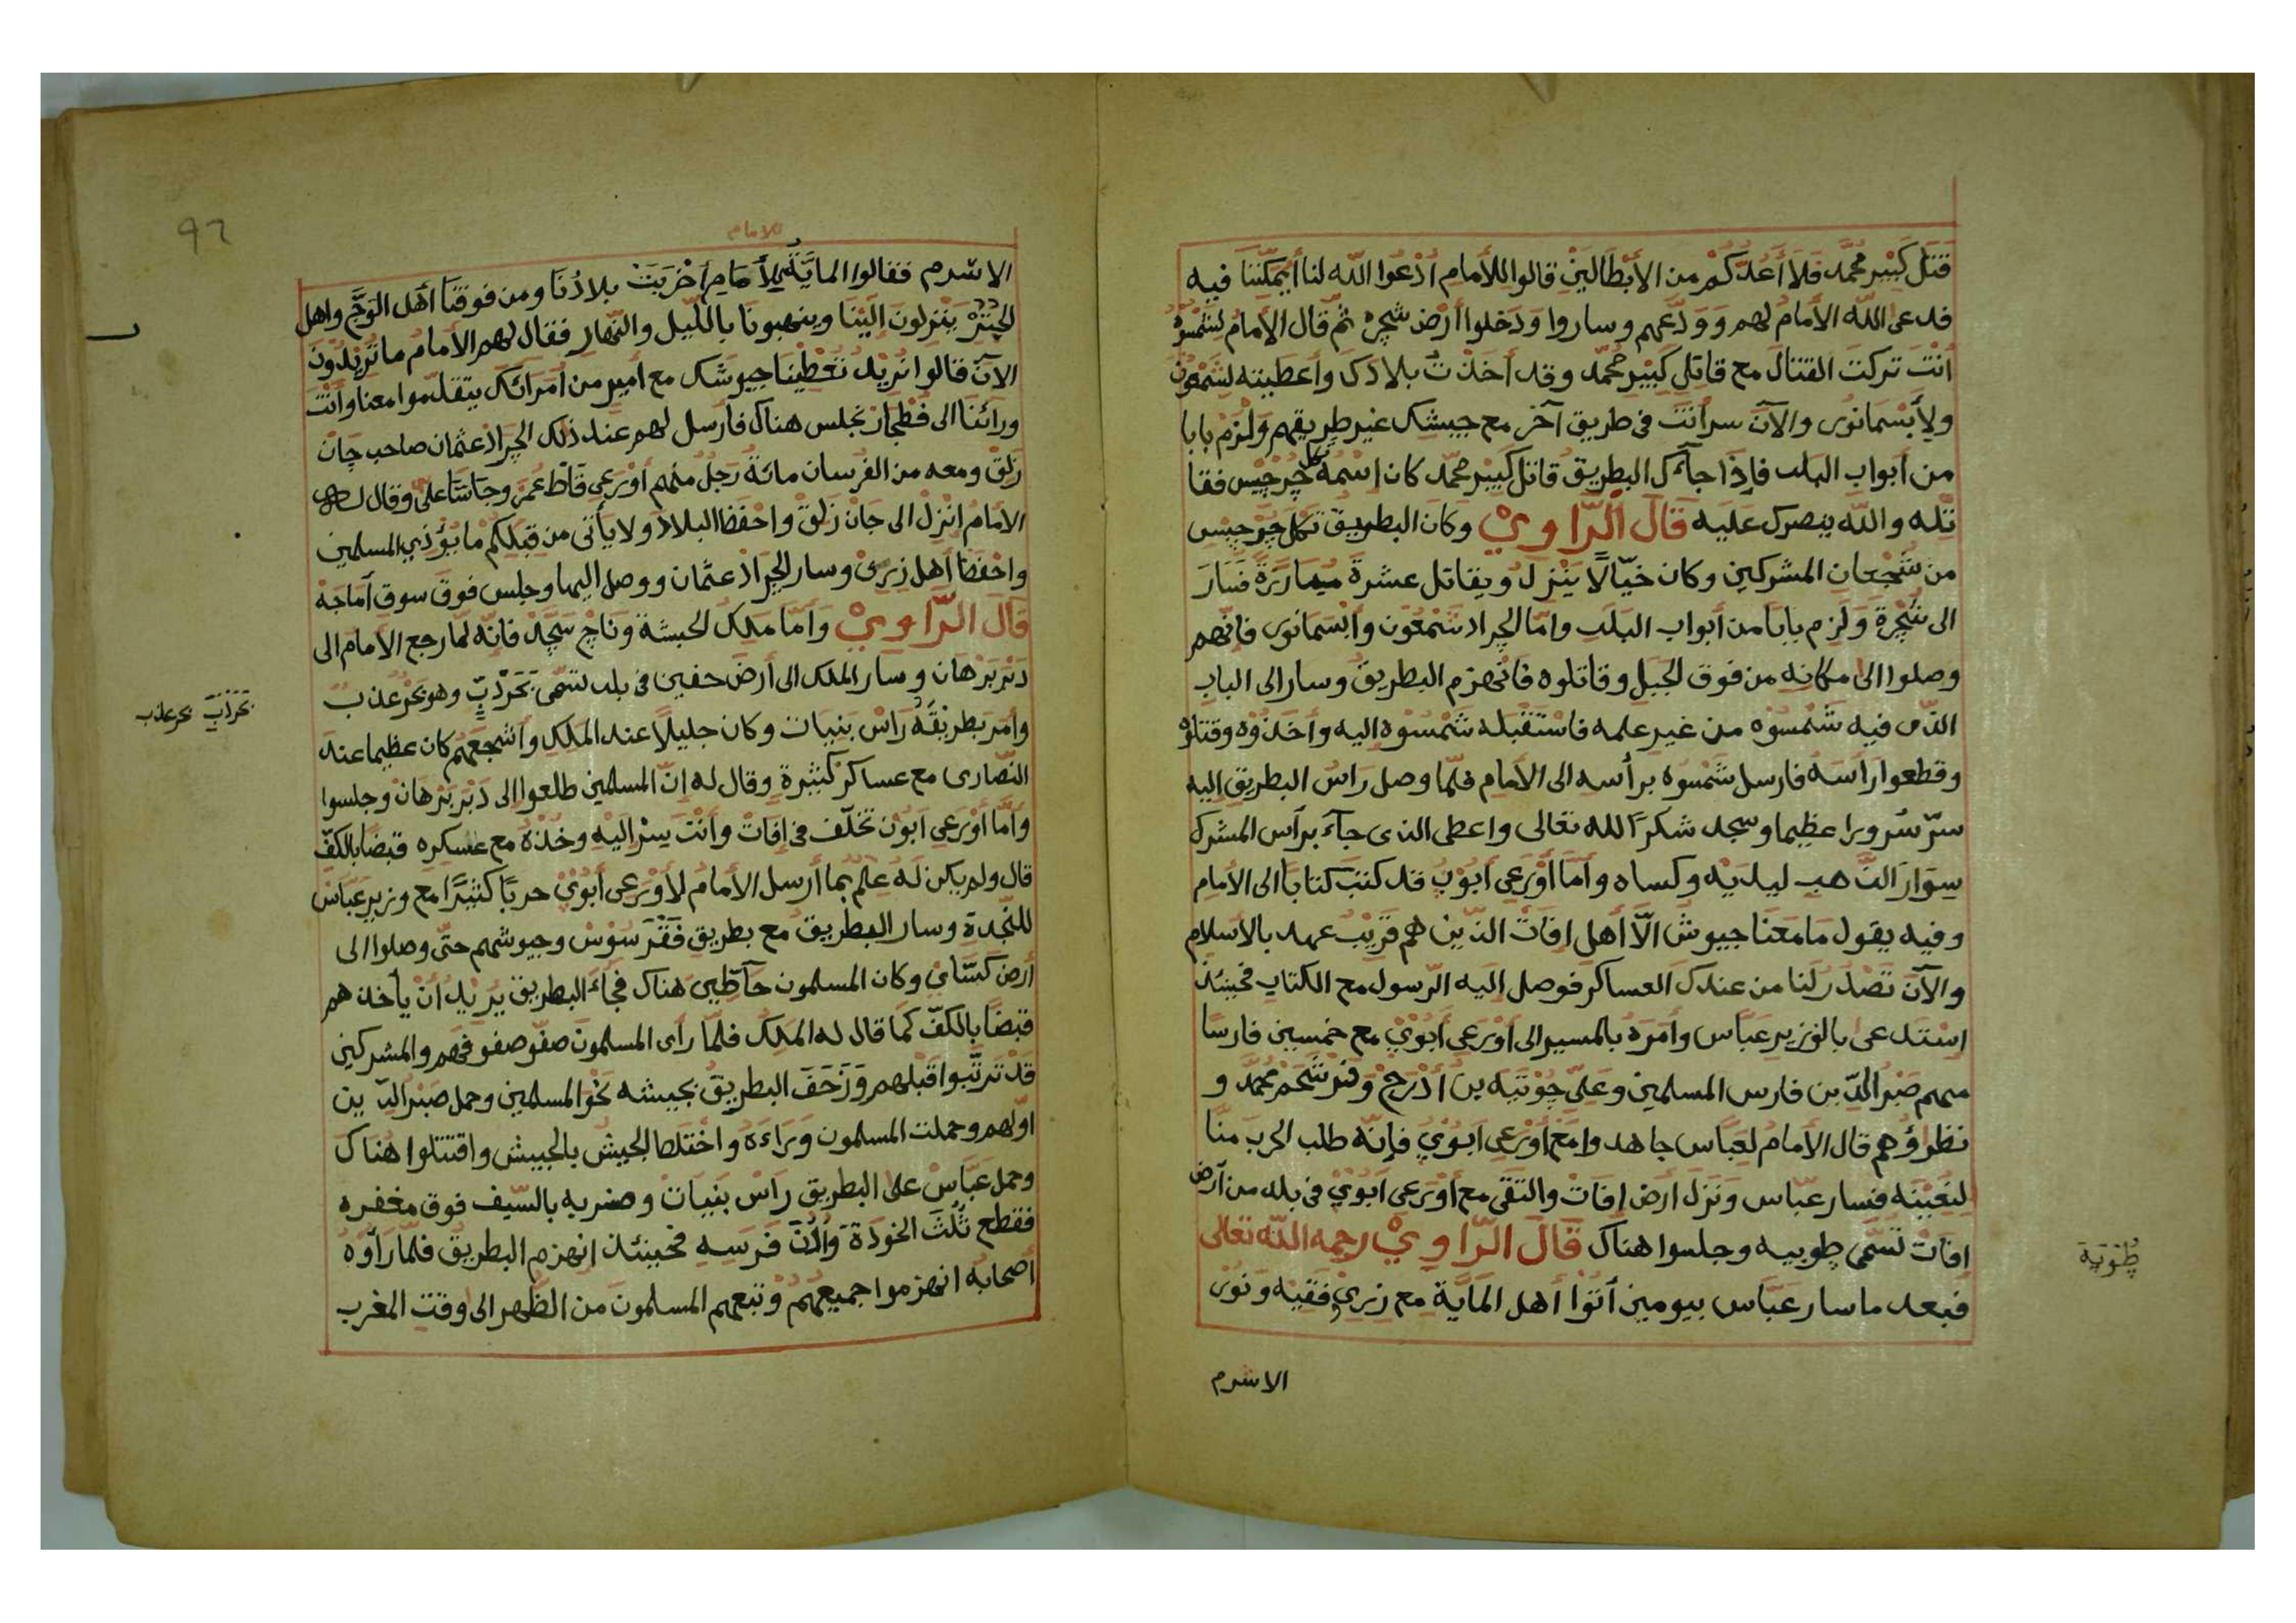 قتل كبير محمد فلا أعدكم من الأبطالين قالوا للأمام ادعوا الله لنا أيمكننا فيه
فدعى الله الأمام لهم وودعهم وساروا ودخلوا أرض شجره ثم قال الإمام لشمسوه
أنت تركت القتال مع قاتلي كبير محمد وقد أخذت بلادك وأعطيته لشمعون
ولأبسمانوى والآن سر أنت في طريق آخر مع جيشك غير طريقهم ولزم بابا
من أبواب البلد فإذا جآءك البطريق قاتل كبير محمد كان إسمه تكل جرجيس فقا
تله والله ينصرك عليه قال الراوي وكان البطريق تكل جرجيس
من شجعان المشركين وكان خيالا ينزل ويقاتل عشرة مبارزة فسار
الى شجرة ولزم بابا من أبواب البلد واما الجراد شمعون وأبسمانوى فانهم
وصلوا الى مكانه من فوق الجبل وقاتلوه فانهزم البطريق وسار الى الباب
الذى فيه شمسوه من غير علمه فاستقبله شمسوه اليه وأخذوه وقتلوه
وقطعوا راسه فارسل شمسوه برأسه الى الأمام فلما وصل راس البطريق اليه
سر سرورا عظيما وسجد شكرا لله تعالى واعطى الذى جآء برأس المشرك
سوار الذهب ليديه وكساه وأما أورعى أبوب قد كتب كتابا الى الأمام
وفيه يقول ما معنا جيوش الا أهل إفات الذين هم قريب عهد بالأسلام
والآن تصدر لنا من عندك العساكر فوصل اليه الرسول مع الكتاب فحينئذ
استدعى بالوزير عباس وأمره بالمسير الى أورعى أبوي مع خمسين فارسا
منهم صبر الدين فارس المسلمين وعلي جوتيه بن أدرج وفرشحم محمد و
نظراؤهم قال الأمام لعباس جاهد وامع أورعى أبوي فإنه طلب الحرب منا
لنعينه فسار عباس ونزل أرض إفات والتقى مع أورعى أبوي في بلد من أرض
إفات تسمى طوبيه وجلسوا هناك قال الراوي رحمه الله تعالى
فبعد ما سار عباس بيومين أتوا أهل الماية مع زيري وفقيه ونوى
الاشرم
طوبية
للامام
الاشرم فقالوا الماية للأمام أخربت بلادنا ومن فوقنا أهل الوج واهل
الجنز ينزلون الينا وينهبونا بالليل والنهار فقال لهم الأمام ما تريدون
الآن قالوا نريد تعطينا جيوشك مع أمير من أمرائك يتقدموا معنا وأنت
ورائنا الى فطجار تجلس هناك فارسل لهم عند ذلك الجراد عثمان صاحب جان
زلق ومعه من الفرسان مائة رجل منهم أورعى قاط عمر وجاسا علي وقال له
الامام انزل الى جان زلق واحفظ البلاد ولا يأتى من قبلكم ما يؤذي المسلمين
واحفظ أهل زيرى وسار الجراد عثمان ووصل اليها وجلس فوق سوق أماجه
قال الراوي وأما ملك الحبشة وناج سجد فانه لما رجع الأمام الى
دبر برهان وسار الملك الى أرض حفين في بلد تسمى بحر ذب وهو بحر عذب
وأمر بطريقه راس بنيات وكان جليلا عند الملك وأشجعهم كان عظيما عند
النصارى مع عساكر كثيرة وقال له إن المسلمين طلعوا الى دبر برهان وجلسوا
وأما أورعى ابون تخلف في إفات وأنت سر اليه وخذه مع عسكره قبضا بالكف
قال ولم يكن له علم بما أرسل الأمام لأورعى أبوي حربا كثيرا مع وزير عباس
للنجدة وسار البطريق مع بطريق فقر سوس وجيوشهم حتى وصلوا الى
أرض كساي وكان المسلمون حآطين هناك فجاء البطريق يريد أن يأخذهم
قبضا بالكف كما قال له الملك فلما رأى المسلمون صفو صفوفهم والمشركين
قد ترتبوا قبلهم وزحف البطريق بجيشه نحو المسلمين وحمل صبر الدين
اولهم وحملت المسلمون وراءه واختلط الجيش بالجيش واقتتلوا هناك
وحمل عباس على البطريق راس بنيات وضربه بالسيف فوق مغفره
فقطع ثلث الخوذة وأذن فرسه فحينئذ انهزم البطريق فلما رأوه
أصحابه انهزموا جميعهم وتبعهم المسلمون من الظهر الى وقت المغرب
بحر ذب بحر عذب
٩٦